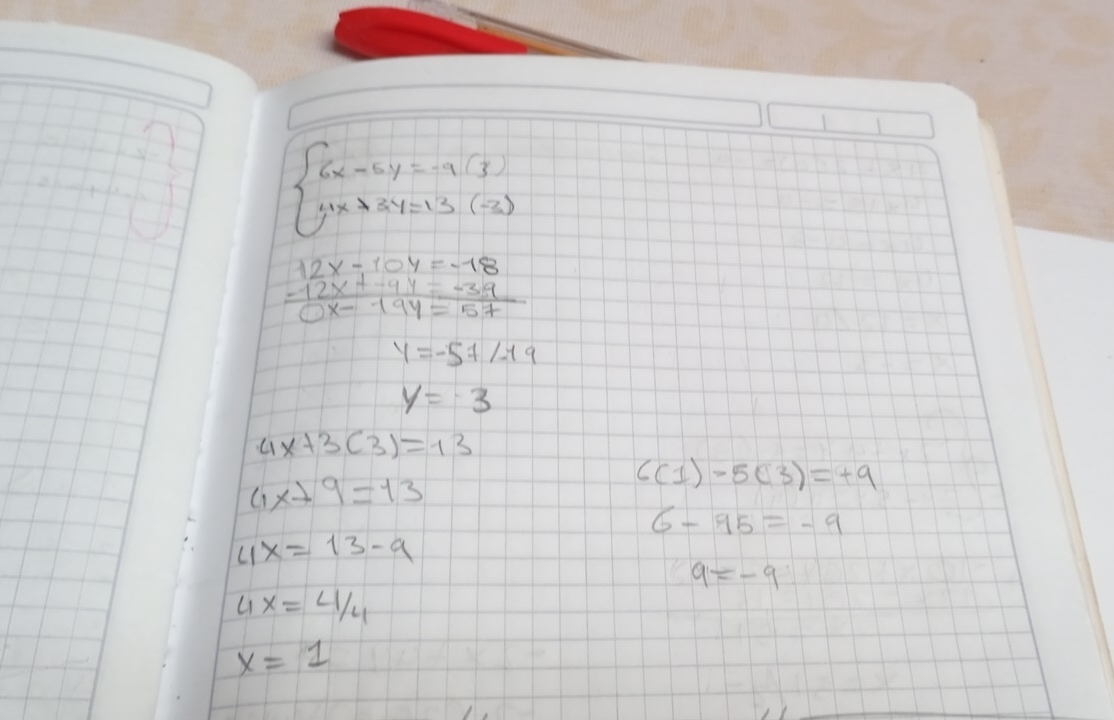 6x-5y=-9 (3)
4x+3y=13 (-3)
12x-10y=-18
-12x+-9y=-39
0x-19y=57
y=-57/-19
y= 3
4x+3(3)=13
4x+9=13
4x=13-9
4x=4/4
x=1
6(1)-5(3)=+9
6-95=-9
9=-9